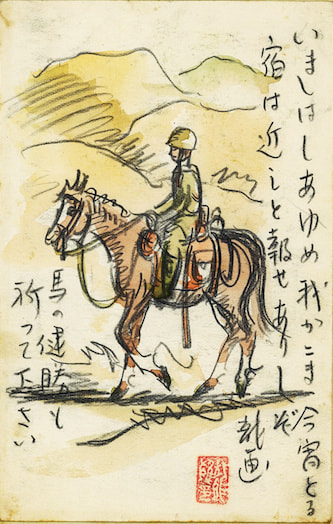 いましはしあゆめ我かこま今宵とる
宿は近しと報せありしぞ
馬の健勝も
祈って下さい